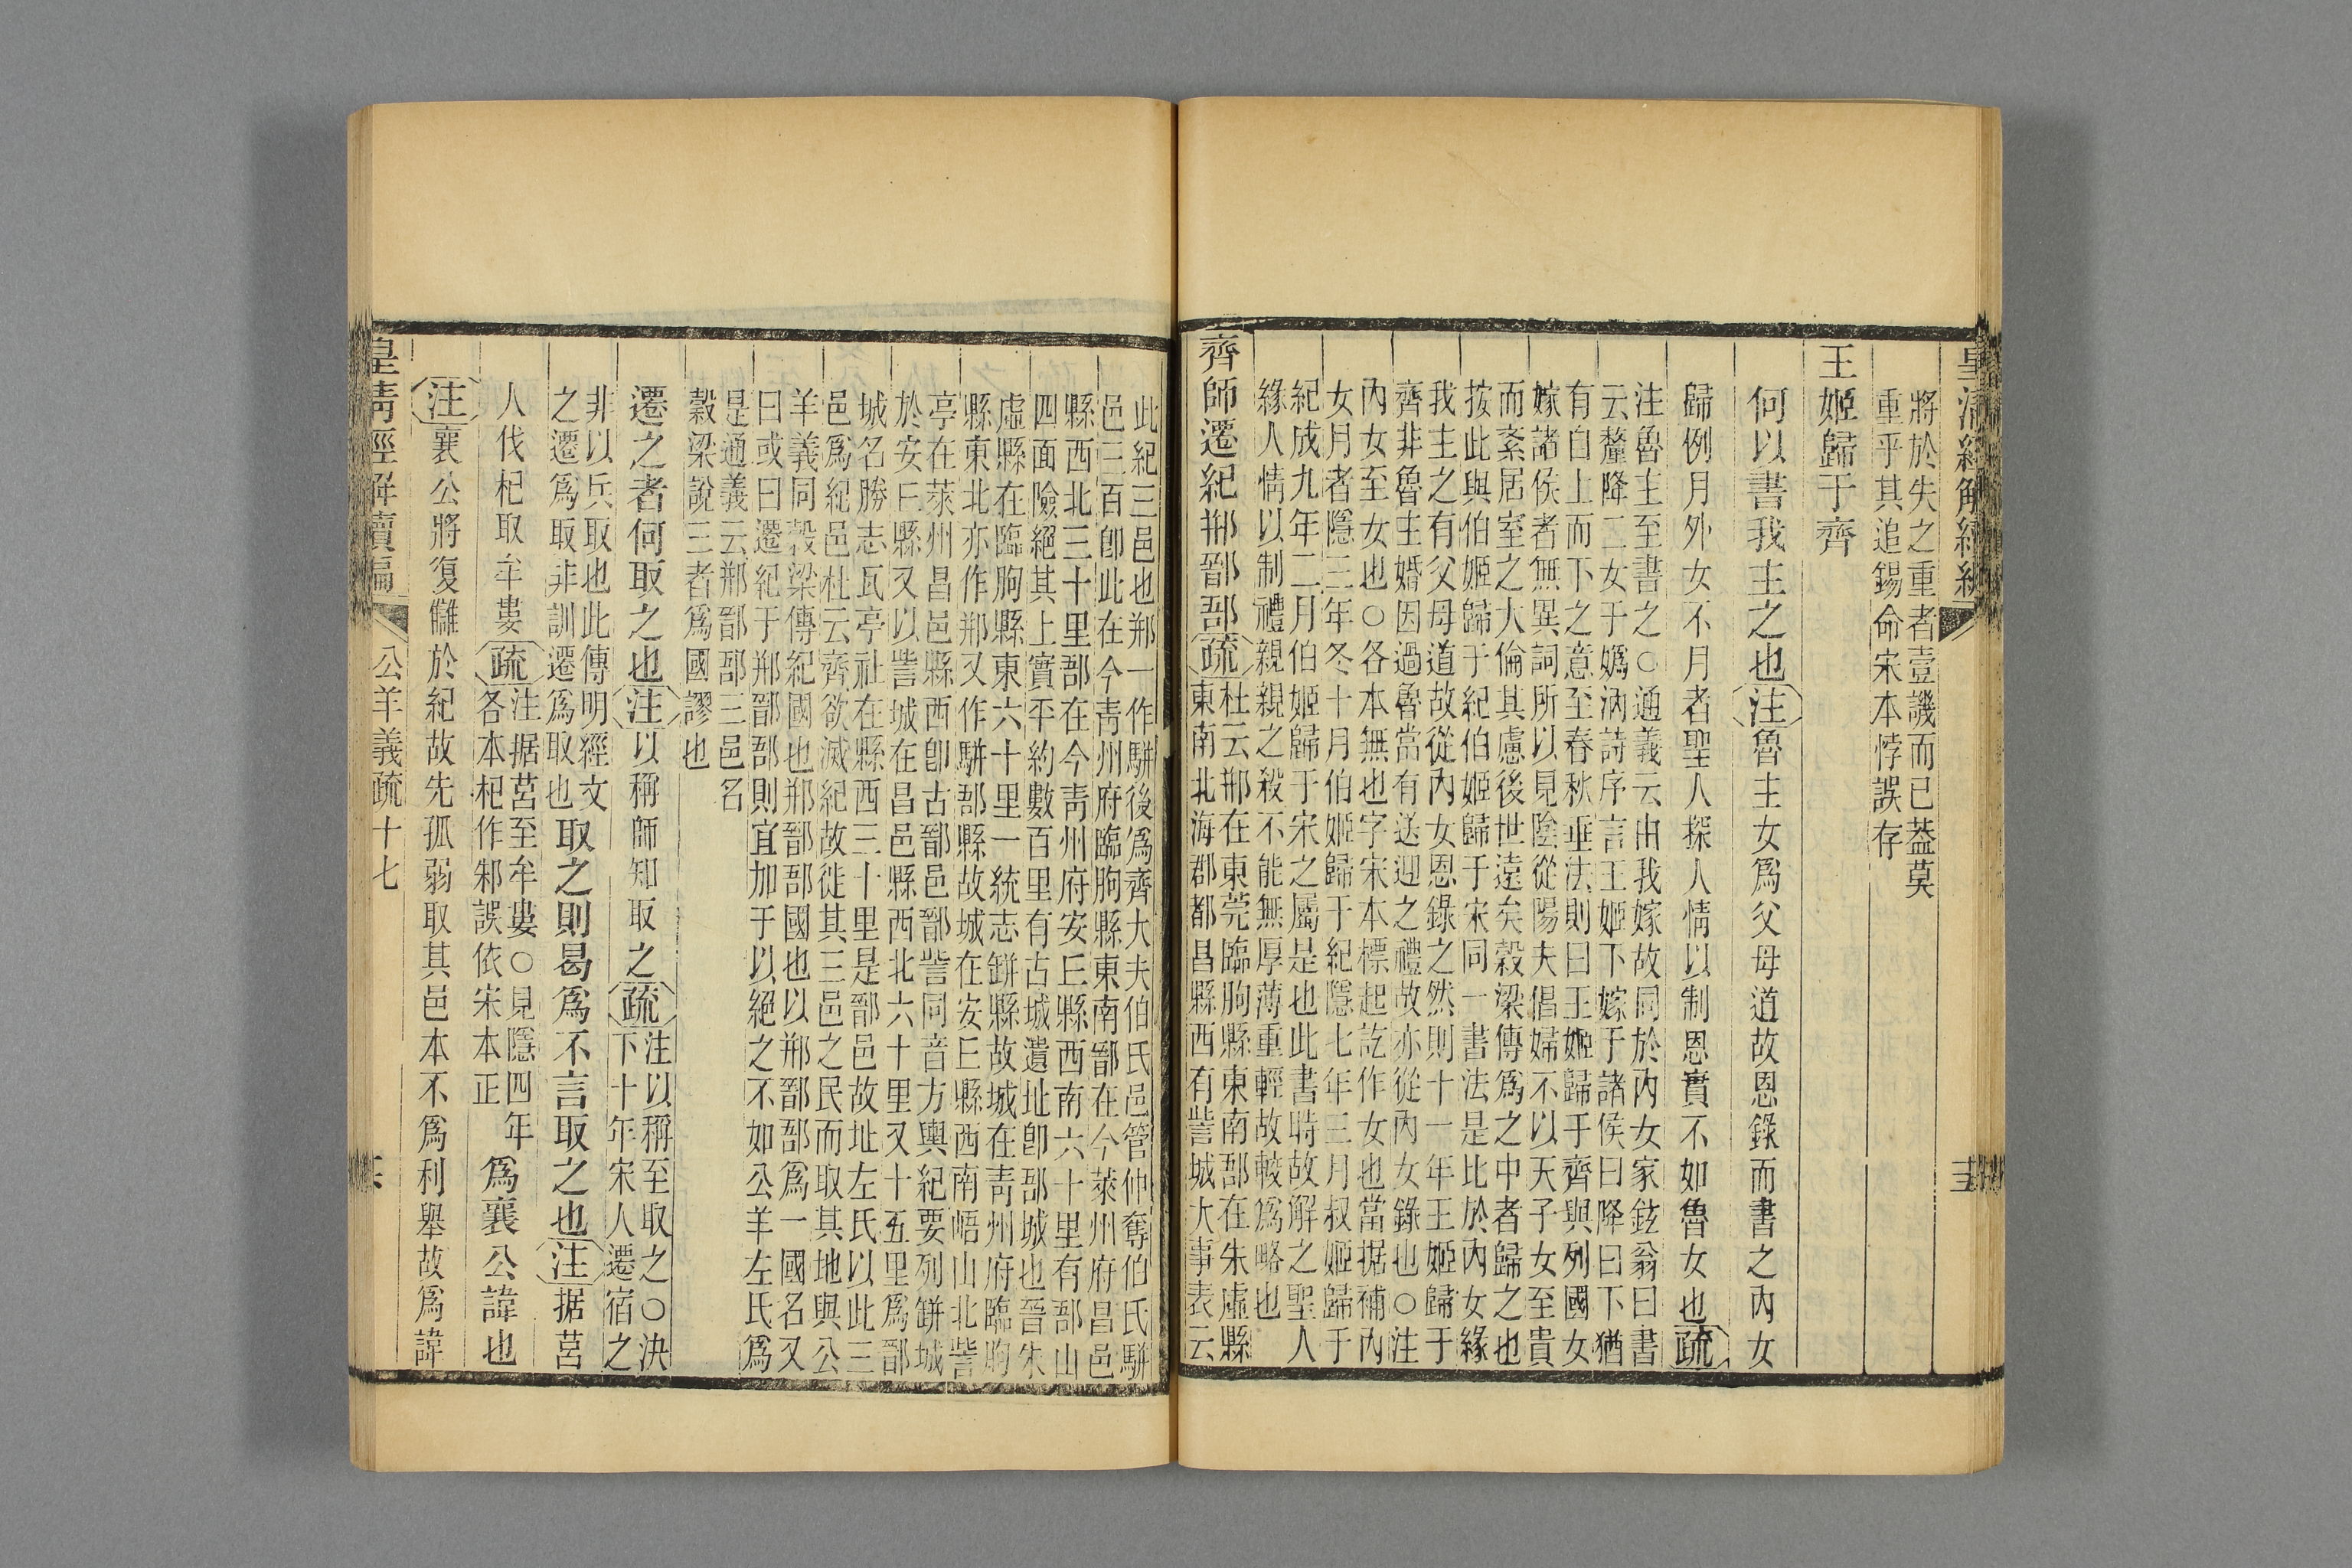 皇清經解續編
將於失之重者壹譏而已葢莫
重乎其追錫命宋本悖誤存
王姬歸于齊
何以書我主之也注魯主女爲父母道故恩錄而書之內女
歸例月外女不月者聖人探人情以制恩實不如魯女也疏
注魯主至書之○通義云由我嫁故同於內女家鉉翁曰書
云釐降二女于嬀汭詩序言王姬下嫁于諸侯曰降曰下猶
有自上而下之意至春秋垂法則曰王姬歸于齊與列國女
嫁諸侯者無異詞所以見陰從陽夫倡婦不以天子女至貴
而紊居室之大倫其慮後世遠矣穀梁傳爲之中者歸之也
按此與伯姬歸于紀伯姬歸于宋同一書法是比於內女緣
我主之有父母道故從內女恩錄之然則十一年王姬歸于
齊非魯主婚因過魯當有送迎之禮故亦從內女錄也○注
內女至女也○各本無也字宋本標起訖作女也當据補內
女月者隱二年冬十月伯姬歸于紀隱七年三月叔姬歸于
紀成九年二月伯姬歸于宋之屬是也此書時故解之聖人
緣人情以制禮親親之殺不能無厚薄重輕故較爲略也
齊師遷紀郱鄑郚疏杜云郱在東莞臨朐縣東南郚在朱虛縣
東南北海郡都昌縣西有訾城大事表云
此紀三邑也郱一作駢後爲齊大夫伯氏邑管仲奪伯氏駢
邑三百卽此在今青州府臨朐縣東南鄑在今萊州府昌邑
縣西北三十里郚在今青州府安丘縣西南六十里有郚山
四面險絕其上實平約數百里有古城遺址卽郚城也晉朱
虛縣在臨朐縣東六十里一統志缾縣故城在青州府臨朐
縣東北亦作郱又作駢郚縣故城在安丘縣西南峿山北訾
亭在萊州昌邑縣西卽古鄑邑鄑訾同音方輿紀要列缾城
於安丘縣又以訾城在昌邑縣西北六十里又十五里爲鄑
城名勝志瓦亭社在縣西三十里是鄑邑故址左氏以此三
邑爲紀邑杜云齊欲滅紀故徙其三邑之民而取其地與公
羊義同穀梁傳紀國也郱鄑郚國也以郱鄑郚爲一國名又
曰或曰遷紀于郱鄑郚則宜加于以絕之不如公羊左氏爲
是通義云郱鄑郚三邑名
穀梁說三者爲國謬也
遷之者何取之也注以稱師知取之疏注以稱至取之○決
下十年宋人遷宿之
非以兵取也此傳明經文
之遷爲取非訓遷爲取也取之則曷爲不言取之也注据莒
人伐杞取牟婁疏注据莒至牟婁○見隱四年
各本杞作邾誤依宋本正爲襄公諱也
注襄公將復讎於紀故先孤弱取其邑本不爲利舉故爲諱
皇清經解續編
公羊義疏十七